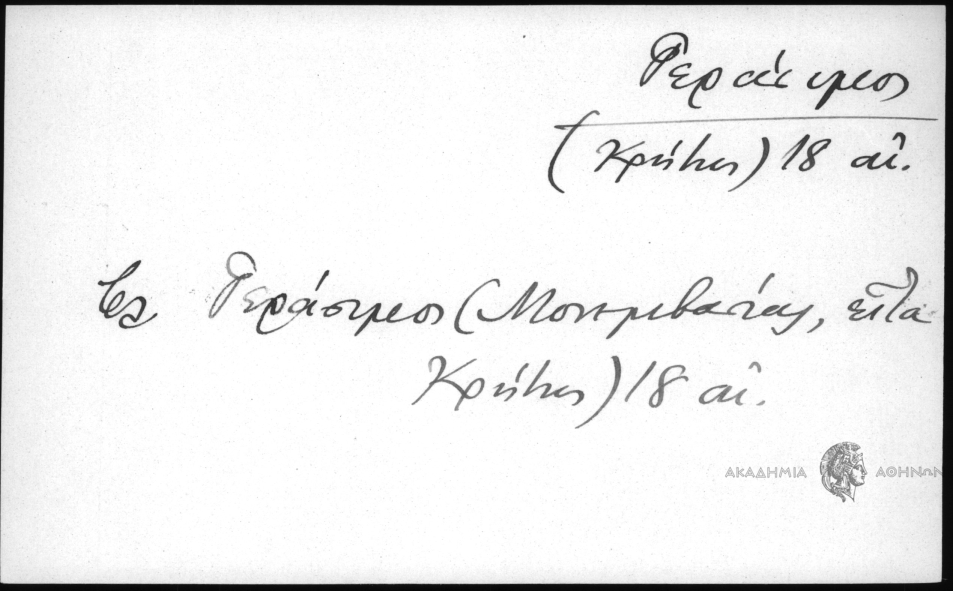 Γεράσιμος
(Κρήτης) 18 αἰ.
βλ Γεράσιμος (Μονεμβασίας, εἶτα
Κρήτης) 18 αἰ.
ΑΚΑΔΗΜΙΑ ΑΘΗΝΩΝ